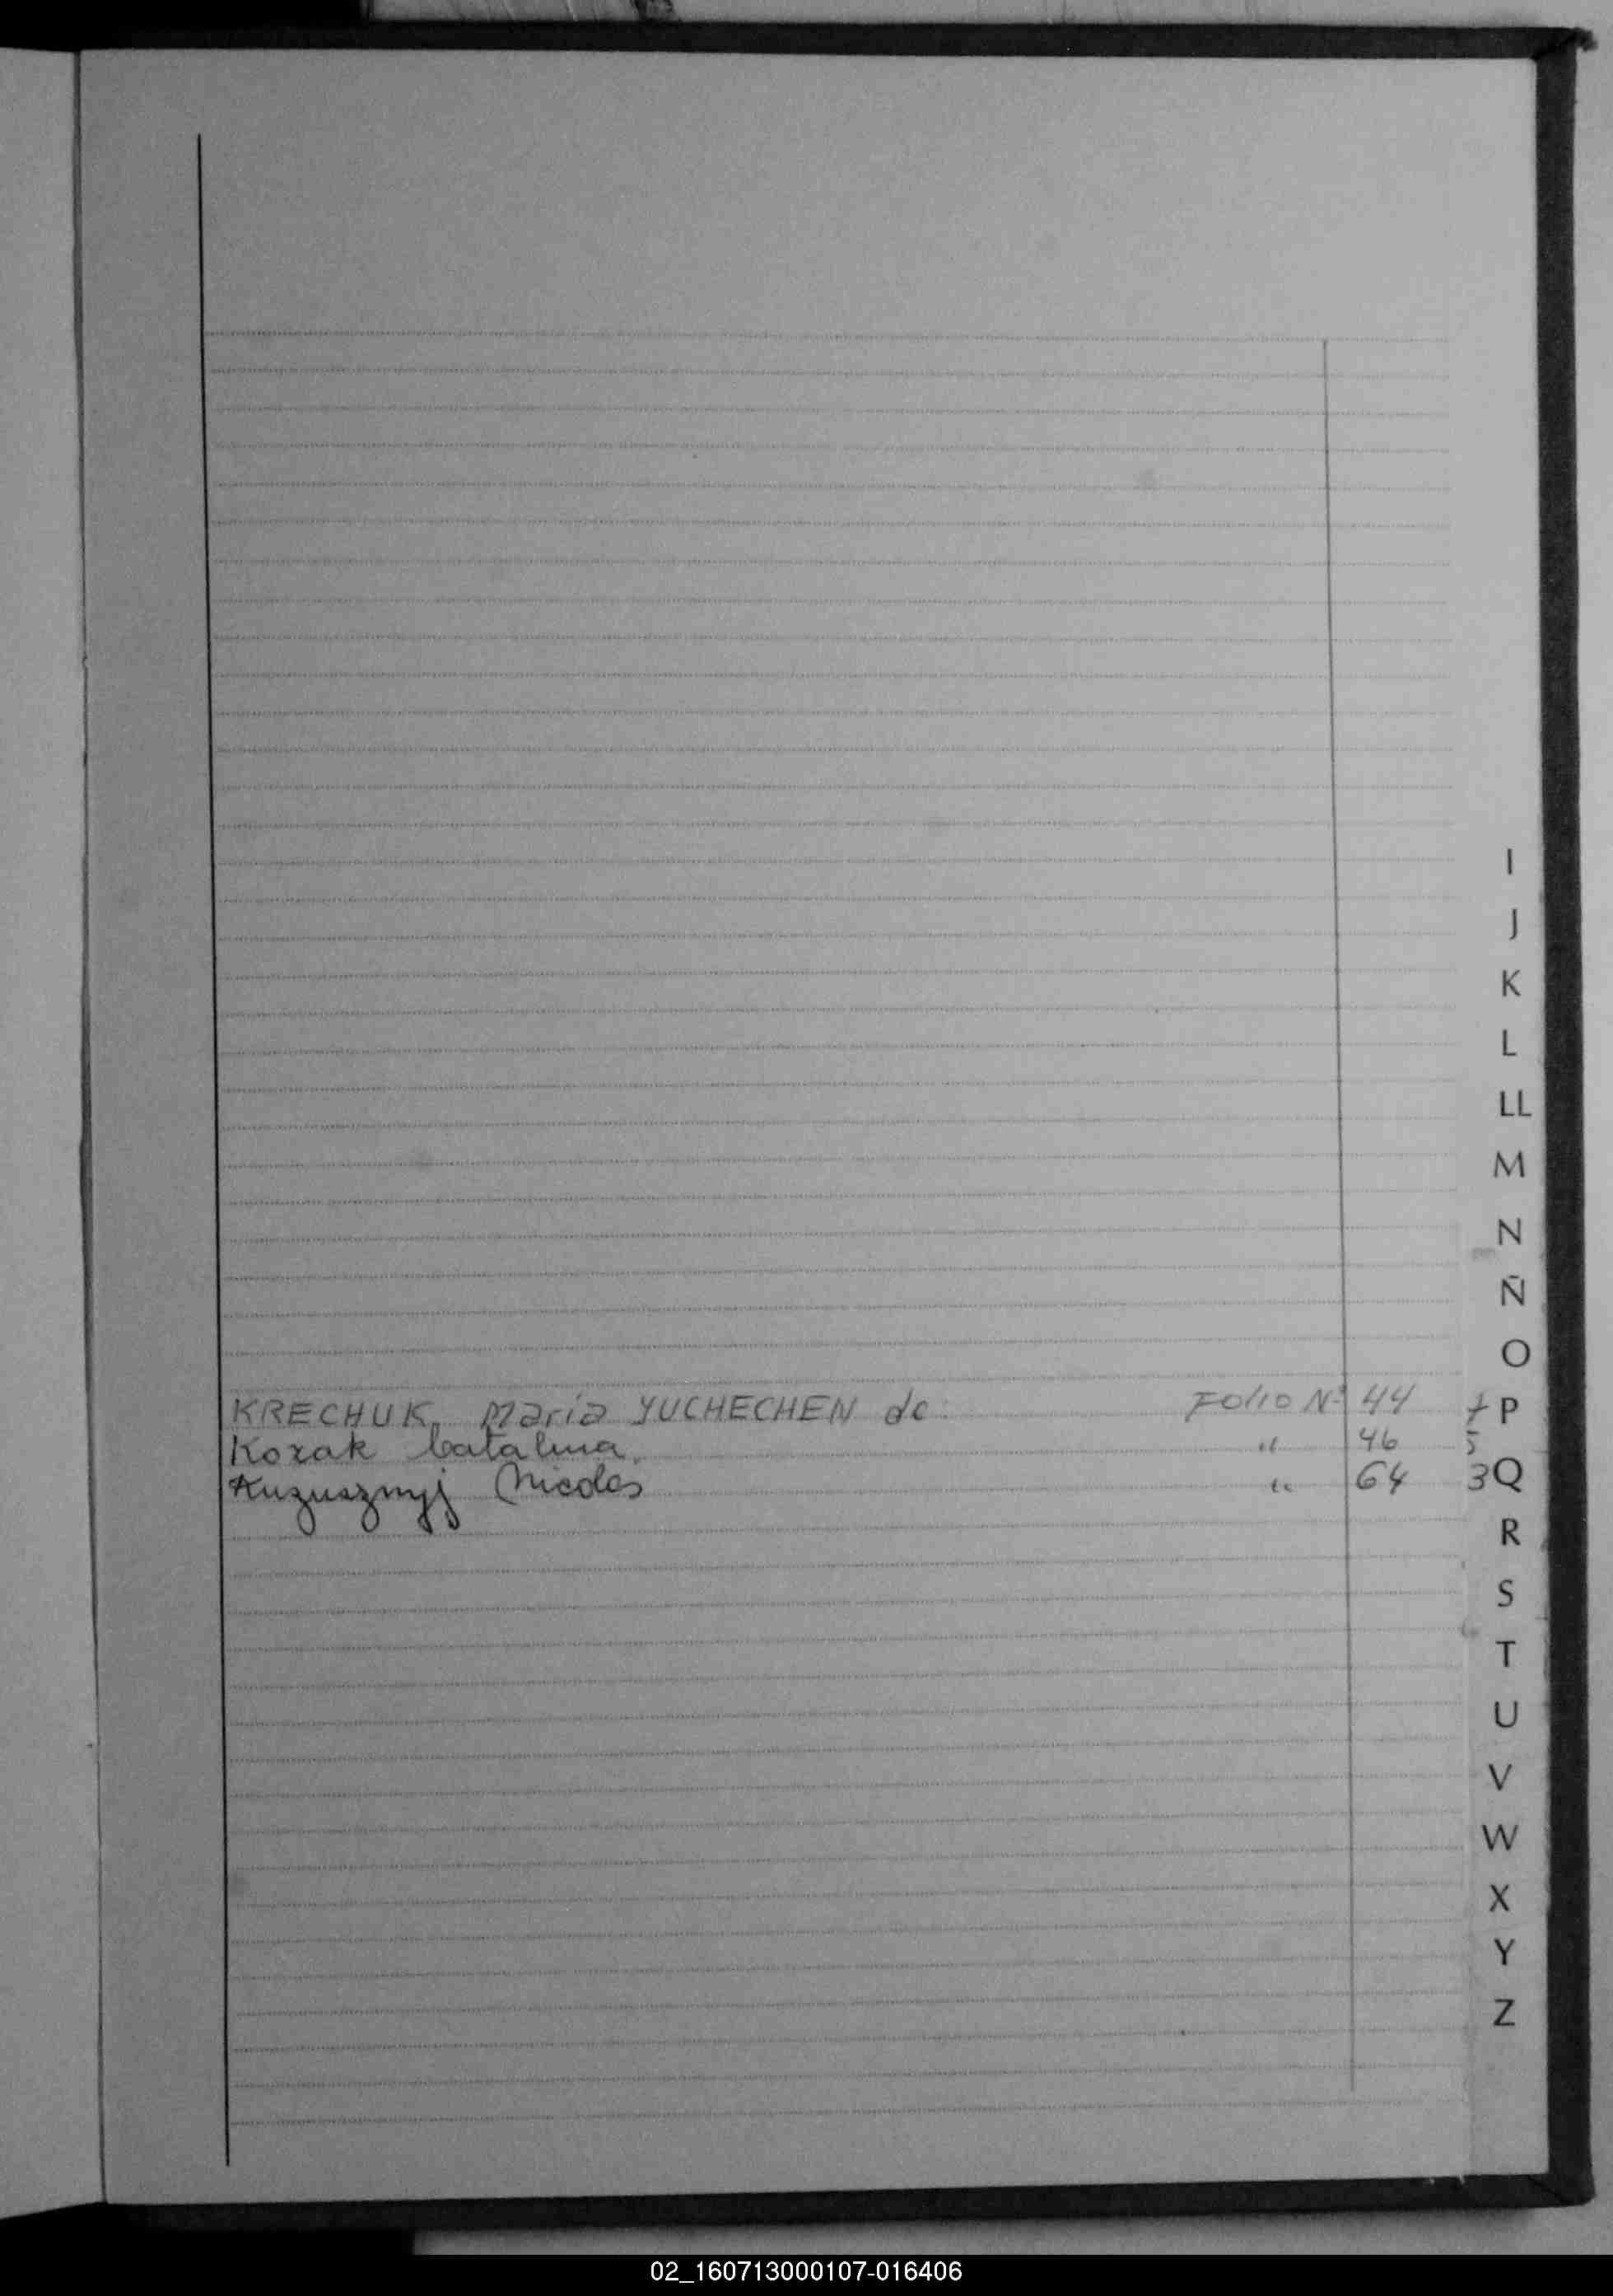 I
J
K
L
LL
M
N
Ñ
O
KRECHUK, María YUCHECHEN de Folio Nº 44
P
Kozak Catalina. " 46 5
Nicolas " 64 3
Q
R
S
T
U
V
W
X
Y
Z
02_160713000107-016406